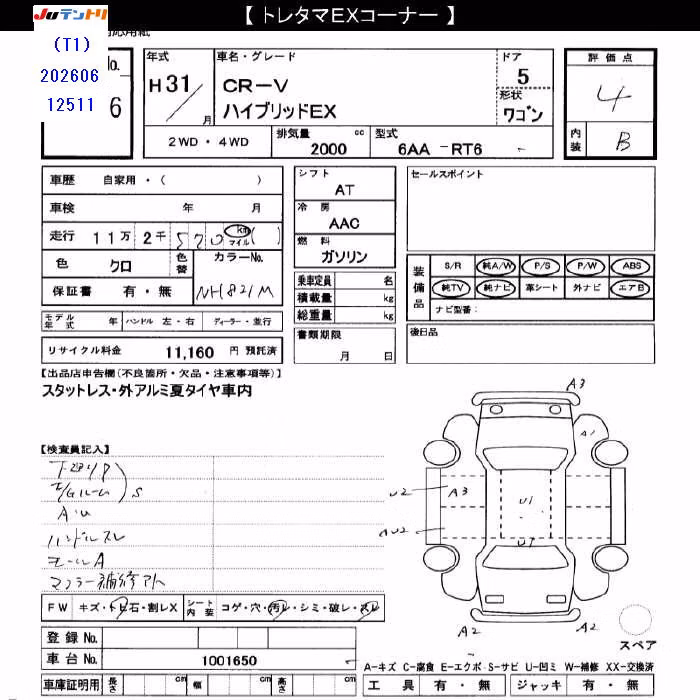 【 トレタマEXコーナー 】
JUテントリ
(T1)
202606
12511
No.
6
年式
H31/
月
車名・グレード
CR-V
ハイブリッドEX
ドア
5
形状
ワゴン
2WD・4WD
排気量 cc
2000
型式
6AA -RT6 -
評価点
4
内装
B
車歴 自家用・( )
車検 年 月
走行 11万 2千 570 km マイル ( )
色 クロ 色替 カラーNo.
NH821M
保証書 有・無
モデル年式 年 ハンドル 左・右 ディーラー・並行
リサイクル料金 11,160 円 預託済
シフト
AT
冷房
AAC
燃料
ガソリン
乗車定員 名
積載量 kg
総重量 kg
書類期限
月 日
セールスポイント
装備品
S/R 純A/W P/S P/W ABS
純TV 純ナビ 革シート 外ナビ エアB
ナビ型番:
後日品
【出品店申告欄(不良箇所・欠品・注意事項等)】
スタットレス・外アルミ夏タイヤ車内
【検査員記入】
下廻りP
E/Gルーム ) S
A・U
ハンドルスレ
モールA
マフラー補修跡
A3
A1
U2
A3
U1
AU2
U1
A2
A2
スペア
FW キズ・トビ石・割レX シート内装 コゲ・穴・汚レ・シミ・破レ・スレ
登録No.
車台No. 1001650 -
車庫証明用 長さ cm 幅 cm 高さ cm
A-キズ C-腐食 E-エクボ S-サビ U-凹ミ W-補修 XX-交換済
工具 有・無 ジャッキ 有・無